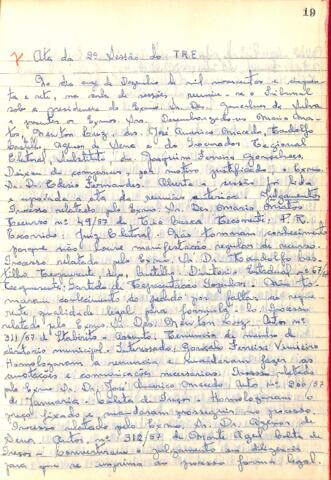 19
Ata da 2ª Sessão do T.R.E.
Ao dia onze de Dezembro de mil novecentos e cinquenta
e sete, na sala de sessões, reuniu-se o Tribunal
sob a presidência do Exmo. Sr. Des.
e presentes os Exmos. Srs. Desembargadores Mário Ma-
tos, Newton Luz, drs. José Américo Macedo, Tandolfo
Castilho, Agenor de Sena e do Procurador Regional
Eleitoral, Substituto, dr. Joaquim Ferreira Gonçalves.
Deixou de comparecer, por motivo justificado, o Exmo.
Sr. Dr. Edésio Fernandes. Aberta a sessão foi lida
e aprovada a ata da reunião anterior. Julgamentos
Processo relatado pelo Exmo. Sr. Des. Mário Matos
Recurso nº 47/57 de Recorrente: P. R.
Recorrido: Juiz Eleitoral. Não tomaram conhecimento
porque não houve manifestação regular de recurso.
Processo relatado pelo Exmo. Sr. Dr. Tandolfo Cas-
tilho Diretório Estadual nº 67/57
Requerente: Partido de Representação Popular. Não to-
maram conhecimento do pedido por faltar ao reque-
rente qualidade legal para formulá-lo. Processo
relatado pelo Exmo. Sr. Des. Newton Luz. Auto nº
311/57 de Itabirito - Assunto: Renúncia de membro de
diretório municipal. Interessado: Gonzalo Ferreira
Homologaram a renúncia e mandaram fazer as
anotações e comunicações necessárias. Processo relatado
pelo Exmo. Sr. Dr. José Américo Macedo Auto nº 200/57
de Januária - Coleta de Preços - Homologaram o
preço fixado e mandaram prosseguir no processo.
Processo relatado pelo Exmo. Sr. Dr. Agenor de
Sena Autos nº 312/57 de Monte Azul Coleta de
Preços - Converteram o julgamento em diligência
para que se imprima ao processo forma legal.